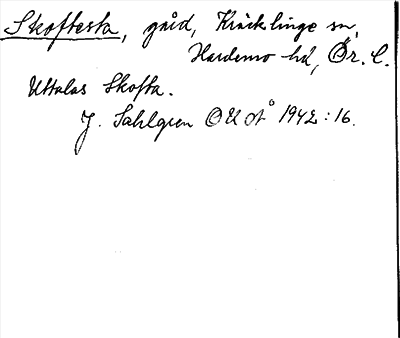 Skoftesta, gård, Kräcklinge sn,
Hardemo hd, Ör. l.
Uttalas Skofta.
J. Sahlgren OUÅ 1942:16.